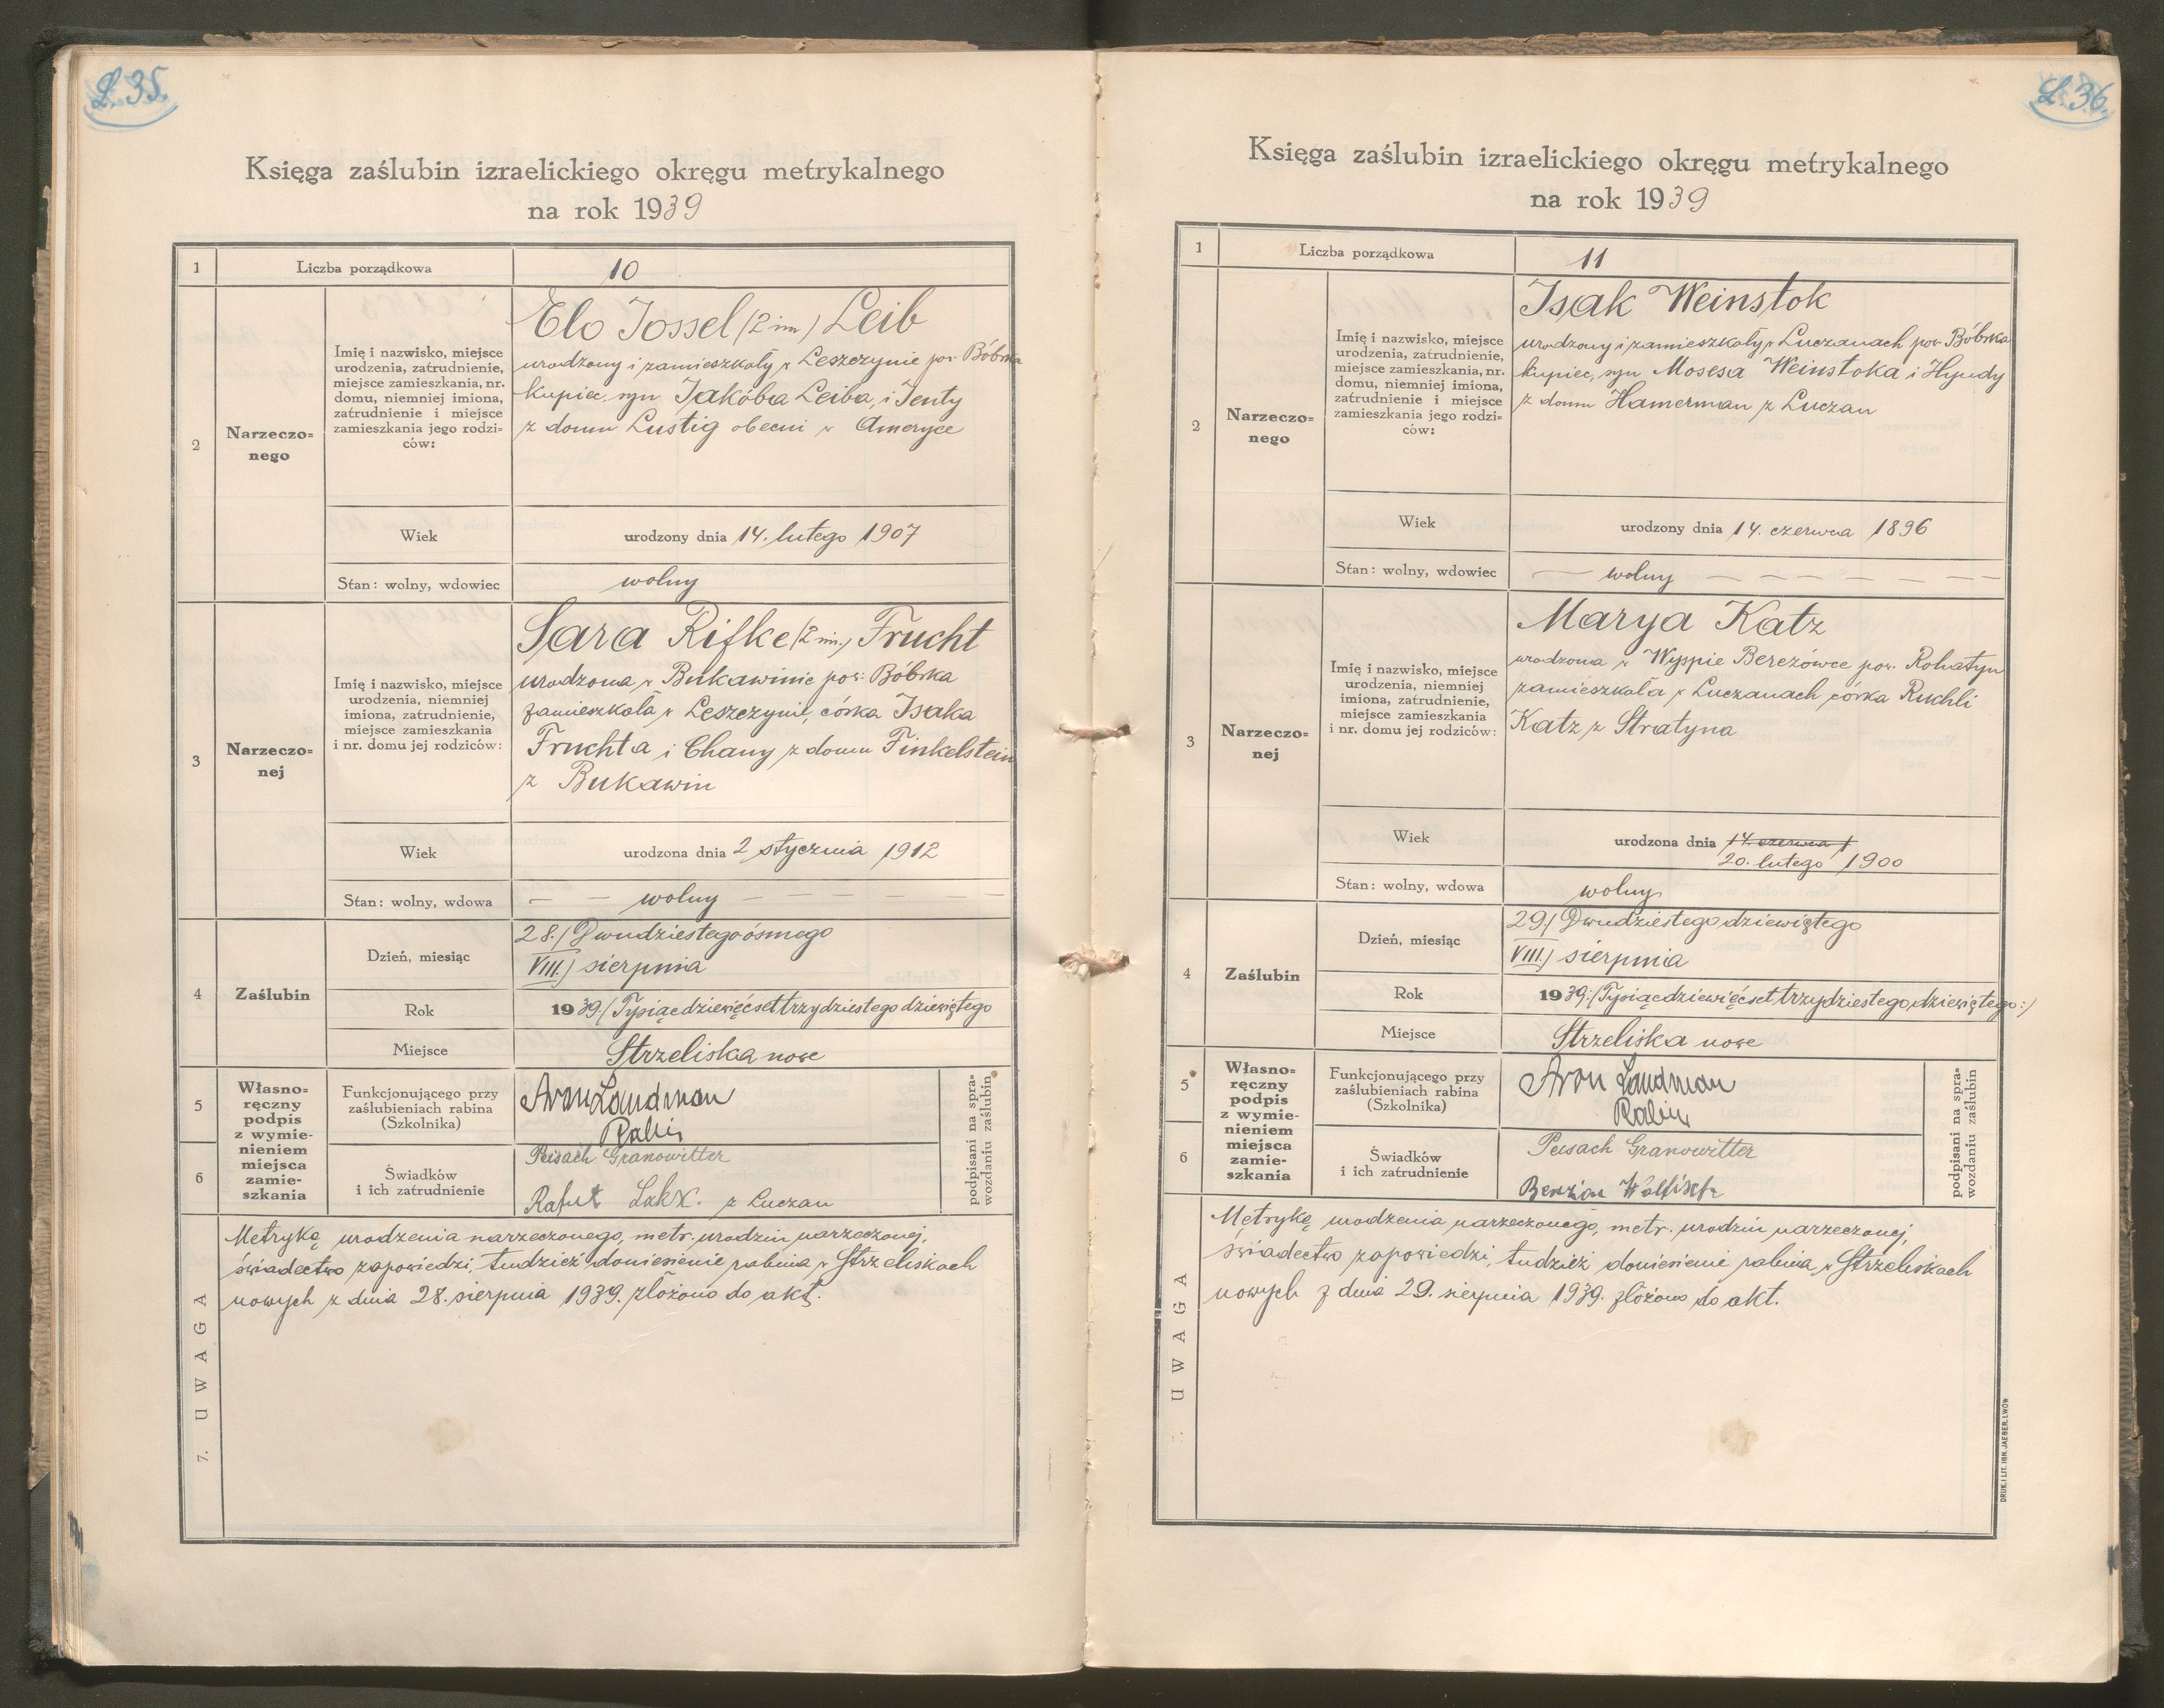 L. 35.
Księga zaślubin izraelickiego okręgu metrykalnego
na rok 1939
1
Liczba porządkowa
10
2
Narzeczo=
nego
Imię i nazwisko, miejsce
urodzenia, zatrudnienie,
miejsce zamieszkania, nr.
domu, niemniej imiona,
zatrudnienie i miejsce
zamieszkania jego rodzi-
ców:
Elo Jossel (2 im) Leib
urodzony i zamieszkały w Leszczynie pow. Bóbrka
kupiec, syn Jakóba Leiba, i Jenty
z domu Lustig obecni w Ameryce
Wiek
urodzony dnia 14. lutego 1907
Stan: wolny, wdowiec
wolny
3
Narzeczo=
nej
Imię i nazwisko, miejsce
urodzenia, niemniej
imiona, zatrudnienie,
miejsce zamieszkania
i nr. domu jej rodziców:
Sara Rifke (2 im.) Frucht
urodzona w Bukawinie pow. Bóbrka
zamieszkała w Leszczynie, córka Isaka
Fruchta i Chany z domu Finkelstein
z Bukawin
Wiek
urodzona dnia 2 stycznia 1912
Stan: wolny, wdowa
— — wolny — — — —
4
Zaślubin
Dzień, miesiąc
28./ Dwudziestego ósmego
VIII.) sierpnia
Rok
1939./ Tysiącdziewięćset trzydziestego dziewiętego
Miejsce
Strzeliska nowe
5
6
Własno=
ręczny
podpis
z wymie-
nieniem
miejsca
zamie-
szkania
Funkcjonującego przy
zaślubieniach rabina
(Szkolnika)
Aron Landman
Rabin
Świadków
i ich zatrudnienie
Peisach Granowitter
z Luczan
podpisani na spra-
wozdaniu zaślubin
7. UWAGA
Metrykę urodzenia narzeczonego, metr. urodzin narzeczonej,
świadectwo zapowiedzi, tudzież doniesienie rabina w Strzeliskach
nowych z dnia 28. sierpnia 1939. złożono do akt.
L. 36.
Księga zaślubin izraelickiego okręgu metrykalnego
na rok 1939
1
Liczba porządkowa
11
2
Narzeczo=
nego
Imię i nazwisko, miejsce
urodzenia, zatrudnienie,
miejsce zamieszkania, nr.
domu, niemniej imiona,
zatrudnienie i miejsce
zamieszkania jego rodzi-
ców:
Isak Weinstok
urodzony i zamieszkały w Luczanach pow. Bóbrka
kupiec, syn Mosesa Weinstoka i Hyndy
z domu Hamerman z Luczan
Wiek
urodzony dnia 14. czerwca 1896
Stan: wolny, wdowiec
— wolny — — — — — — —
3
Narzeczo=
nej
Imię i nazwisko, miejsce
urodzenia, niemniej
imiona, zatrudnienie,
miejsce zamieszkania
i nr. domu jej rodziców:
Marya Katz
urodzona w Wyspie Berezówce pow. Rohatyn
zamieszkała w Luczanach córka Ruchli
Katz z Stratyna
Wiek
urodzona dnia 14. czerwca 1
20. lutego 1900
Stan: wolny, wdowa
wolny
4
Zaślubin
Dzień, miesiąc
29/ Dwudziestego dziewiętego
VIII.) sierpnia
Rok
1939:/Tysiącdziewięćset trzydziestego dziewiętego:/
Miejsce
Strzeliska nowe
5
6
Własno=
ręczny
podpis
z wymie-
nieniem
miejsca
zamie-
szkania
Funkcjonującego przy
zaślubieniach rabina
(Szkolnika)
Aron Landman
Rabin
Świadków
i ich zatrudnienie
Peisach Granowitter
Benzion Walfisch
podpisani na spra-
wozdaniu zaślubin
7. UWAGA
Metrykę urodzenia narzeczonego, metr. urodzin narzeczonej,
świadectwo zapowiedzi, tudzież doniesienie rabina w Strzeliskach
nowych z dnia 29. sierpnia 1939. złożono do akt.
DRUK. I LIT. IGN. JAEGER, LWÓW